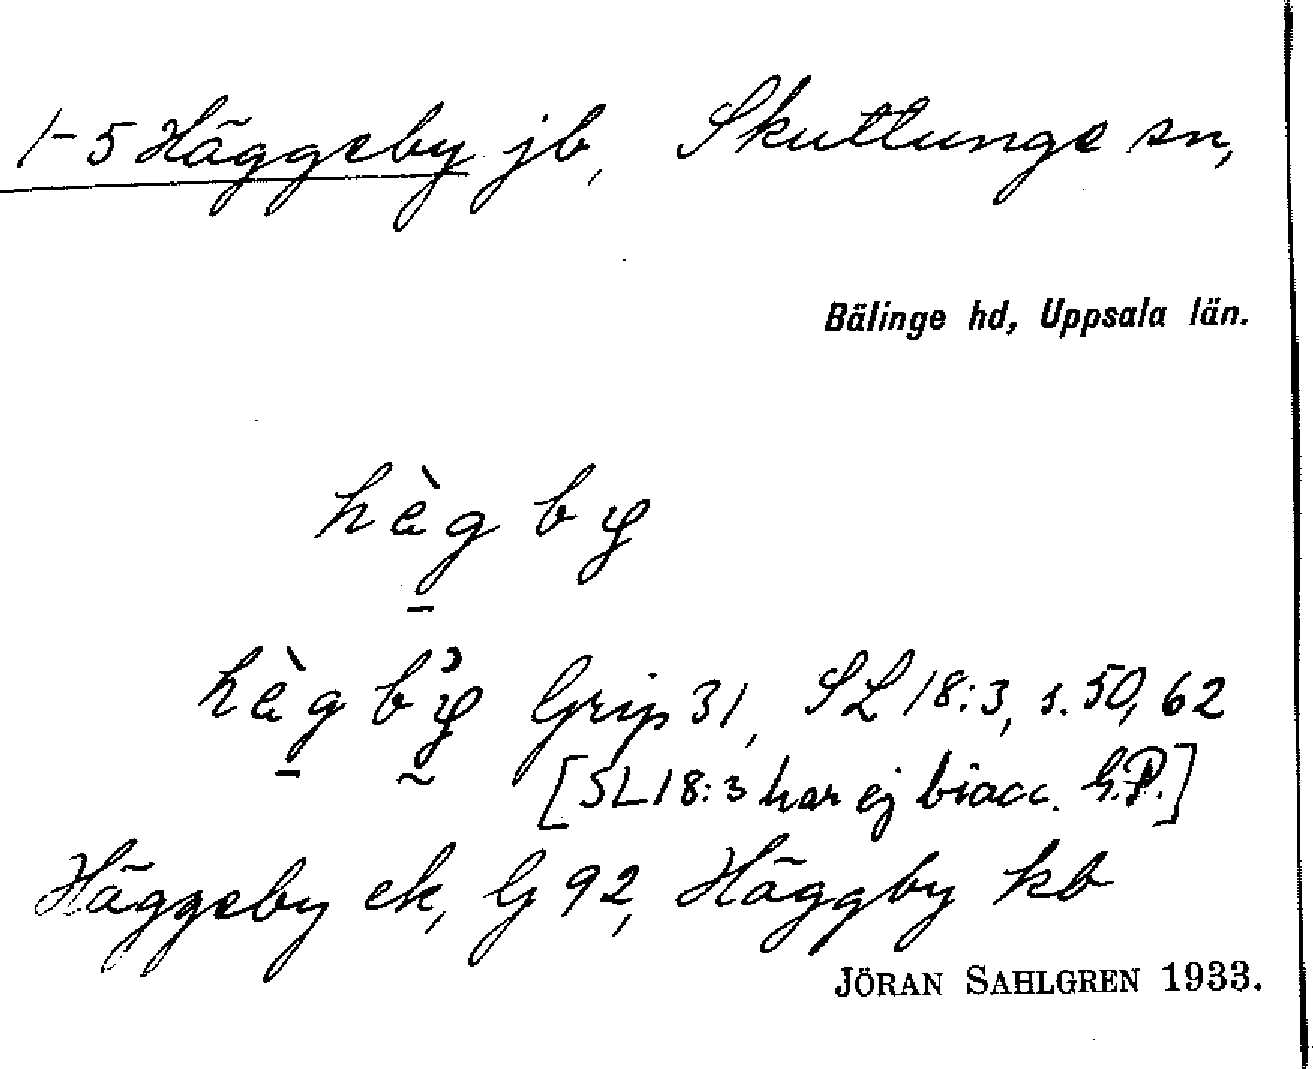 1-5 Häggeby jb, Skuttunge sn,
Bälinge hd, Uppsala län.
hæ̀g by
hæ̀g by Grip 31, SL 18:3, s. 50, 62
[SL 18:3 har ej biacc. G.P.]
Häggeby ek, G 92, Häggby kb
JÖRAN SAHLGREN 1933.